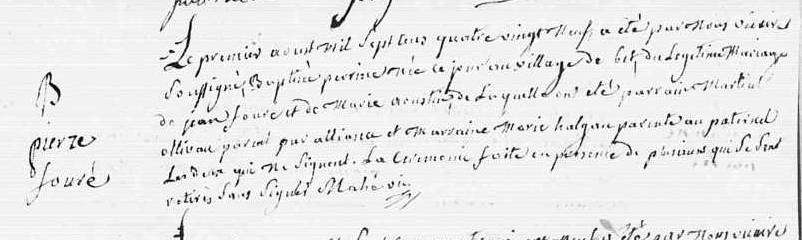 B
pierre
Jouré
Le premier aoust mil sept cens quatre vingt neuf a été par nous vicaire
soussigné Baptisé pierre née ce jour au village de du legitime Mariage
de jean Jouré et de Marie de laquelle ont été parrain Martial
ollivau parent par alliance et Marraine Marie halgan parente au paternel
Les deux qui ne signent. La Ceremonie faite en presence de plusieurs qui se sont
retirés sans signer Mahé vic
été par Nous vicaire